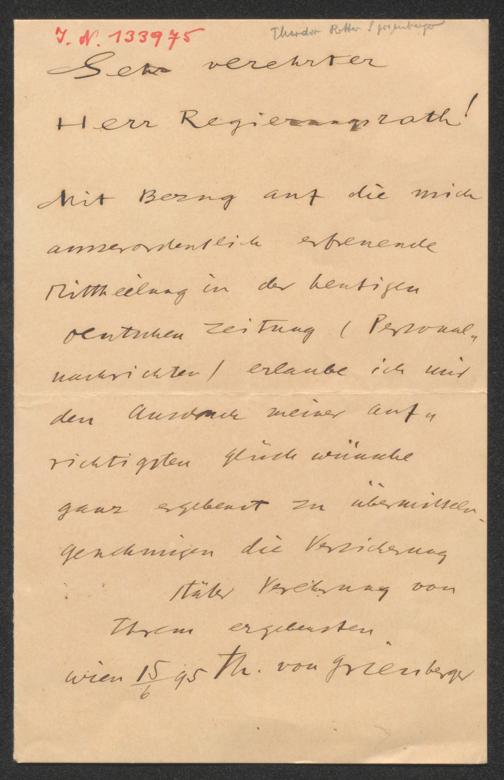 I. N. 133975
Theodor Ritter v. Grienberger
Sehr verehrter
Herr Regierungsrath!
Mit Bezug auf die mich
ausserordentlich erfreuende
Mittheilung in der heutigen
Deutschen Zeitung (Personal„
nachrichten) erlaube ich mir
den Ausdruck meiner auf„
richtigsten Glückwünsche
ganz ergebenst zu übermitteln.
genehmigen die Versicherung
steter Verehrung von
Ihrem ergebensten
Wien 15/6 95 Th. von Grienberger